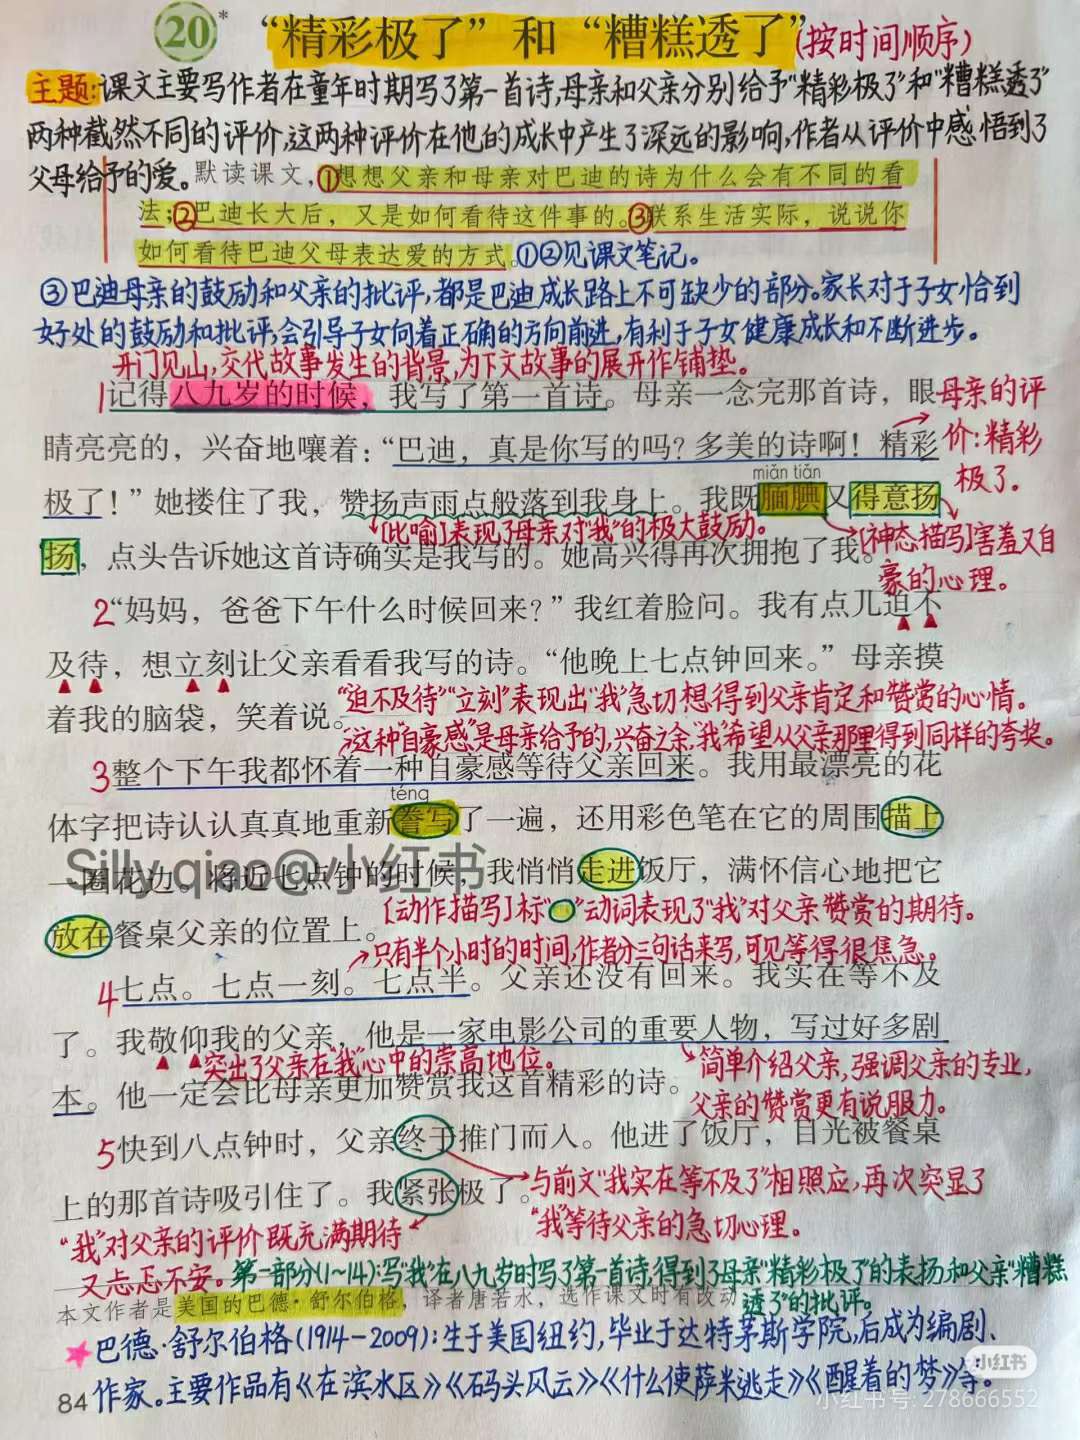 20* “精彩极了”和“糟糕透了”(按时间顺序)
主题:课文主要写作者在童年时期写了第一首诗,母亲和父亲分别给予“精彩极了”和“糟糕透了”
两种截然不同的评价,这两种评价在他的成长中产生了深远的影响,作者从评价中感悟到了
父母给予的爱。
默读课文,①想想父亲和母亲对巴迪的诗为什么会有不同的看
法;②巴迪长大后,又是如何看待这件事的。③联系生活实际,说说你
如何看待巴迪父母表达爱的方式。①②见课文笔记。
③巴迪母亲的鼓励和父亲的批评,都是巴迪成长路上不可缺少的部分。家长对于子女恰到
好处的鼓励和批评,会引导子女向着正确的方向前进,有利于子女健康成长和不断进步。
开门见山,交代故事发生的背景,为下文故事的展开作铺垫。
1记得八九岁的时候,我写了第一首诗。母亲一念完那首诗,眼
母亲的评
睛亮亮的,兴奋地嚷着:“巴迪,真是你写的吗?多美的诗啊!精彩
价:精彩
极了.
miǎn tiǎn
极了!”她搂住了我,赞扬声雨点般落到我身上。我既腼腆又得意扬
[比喻]表现了母亲对“我”的极大鼓励。
[神态描写]害羞又自
扬,点头告诉她这首诗确实是我写的。她高兴得再次拥抱了我。
豪的心理。
2“妈妈,爸爸下午什么时候回来?”我红着脸问。我有点儿迫不
及待,想立刻让父亲看看我写的诗。“他晚上七点钟回来。”母亲摸
“迫不及待”“立刻”表现出“我”急切想得到父亲肯定和赞赏的心情。
着我的脑袋,笑着说。
这种“自豪感”是母亲给予的,兴奋之余,“我”希望从父亲那里得到同样的夸奖。
3整个下午我都怀着一种自豪感等待父亲回来。我用最漂亮的花
téng
体字把诗认认真真地重新誊写了一遍,还用彩色笔在它的周围描上
Silly.qiao@小红书
一圈花边。将近七点钟的时候,我悄悄走进饭厅,满怀信心地把它
[动作描写]标“ ”动词表现了“我”对父亲赞赏的期待。
放在餐桌父亲的位置上。
只有半个小时的时间,作者分三句话来写,可见等得很焦急。
4七点。七点一刻。七点半。父亲还没有回来。我实在等不及
了。我敬仰我的父亲,他是一家电影公司的重要人物,写过好多剧
突出了父亲在“我”心中的崇高地位。
简单介绍父亲,强调父亲的专业,
本。他一定会比母亲更加赞赏我这首精彩的诗。
父亲的赞赏更有说服力.
5快到八点钟时,父亲终于推门而入。他进了饭厅,目光被餐桌
上的那首诗吸引住了。我紧张极了。
与前文“我实在等不及了”相照应,再次突显了
“我”等待父亲的急切心理。
“我”对父亲的评价既充满期待
又忐忑不安。
第一部分(1~14):写“我”在八九岁时写了第一首诗,得到了母亲“精彩极了”的表扬和父亲“糟糕
透了”的批评。
本文作者是美国的巴德·舒尔伯格,译者唐若水,选作课文时有改动
巴德·舒尔伯格(1914-2009):生于美国纽约,毕业于达特茅斯学院,后成为编剧、
作家.主要作品有《在滨水区》《码头风云》《什么使萨米逃走》《醒着的梦》等。
84
小红书
小红书号: 278666552